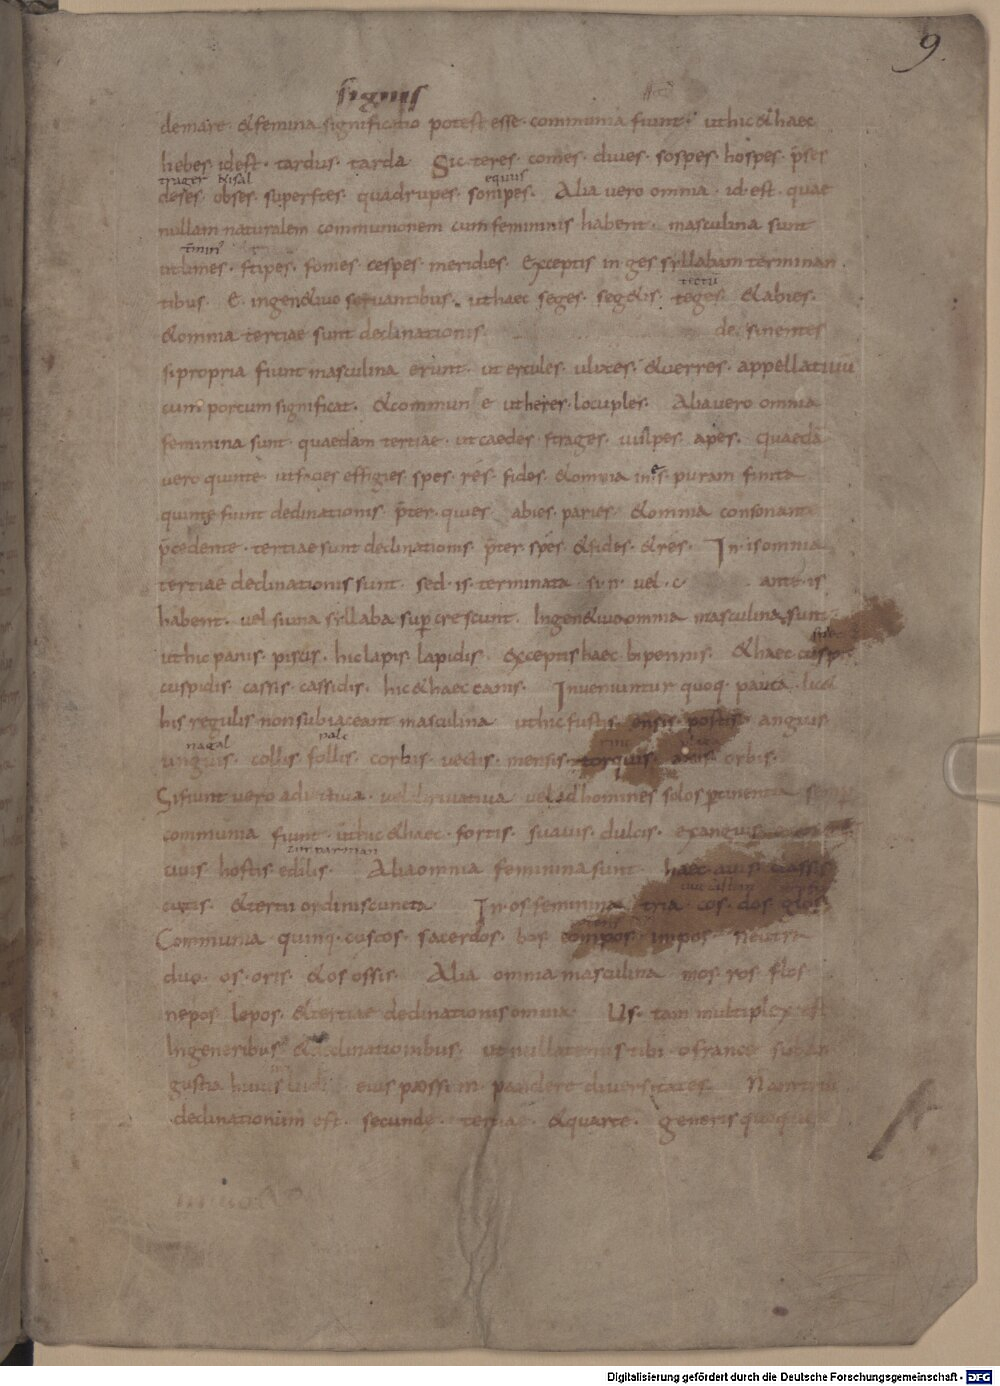 9
signis
demare &femina significatio potest esse communia fiunt · uthic&haec
hebes · idest · tardus · tarda Sic teres · comes · diues · sospes · hospes · p̄ses
trager kisal equus
deses · obses · superstes · quadrupes · sonipes · Alia uero omnia · id·est · quae
nullam naturalem communionem cum femininis habent · masculina sunt
t̄min'
utlimes · stipes · fomes · cespes · meridies · Exceptis in ges syllabam terminan
tectū
tibus · E · ingen&iuo seruantibus · uthaec seges · seg&is · teges · &abies ·
&omnia tertiae sunt declinationis de sinentes
si propria fiunt masculina erunt · ut ercules · ulixes · &uerres · appellatiuū
cum porcum significat · &commun e ut herer · locuples · Alia uero omnia
feminina sunt · quaedam tertiae · ut caedes · strages · uulpes · apes · quaedā
uero quinte · utfacies effigies · spes · res · fides · &omnia in es puram finita
quintę fiunt declinationis · p̄ter · quies · abies · paries · &omnia consonante
p̄cedente · tertiae sunt declinationis · p̄ter · spes · &fides · &res · In · is omnia
tertiae declinationis sunt · sed · is · terminata · si · n · uel · c ante is
habent · uel si una syllaba sup crescunt · Ingen&iuo omnia masculina sunt
uthic panis · piscis · hic lapis lapidis · exceptis haec bipennis · &haec cuspis
cuspidis cassis · cassidis · hic&haec canis · Inueniuntur quoq· pauca · lic&
his regulis non subiaceant masculina uthic fustis · ensis · postis · anguis
nagal palc
unguis · collis · follis · corbis · uectis · mensis · torquis · axis · orbis ·
Si fiunt uero aduectiua · uel diriuatiua uel ad homines solos ptinentia semp
communia fiunt · ut hic&haec · fortis · suauis · dulcis · exanguis
ciuis · hostis · edilis · Alia omnia feminina sunt · haec auis classis
cutis · &tertii ordinis cuncta In · os feminina tria · cos · dos glos
Communia quinq· custos · sacerdos · bos compos · impos neutra
duo · os · oris · &os ossis · Alia omnia masculina mos · ros · flos
nepos lepos · &tertiae declinationis omnia · Us · tam multiplex est
Ingeneribus &declinationibus · ut nullatenus tibi o france suban
gustia huius ludi eius possim · pandere diuersitates · Nam triū
declinationum est · secunde · tertiae · &quarte · generis quoque
Digitalisierung gefördert durch die Deutsche Forschungsgemeinschaft - DFG